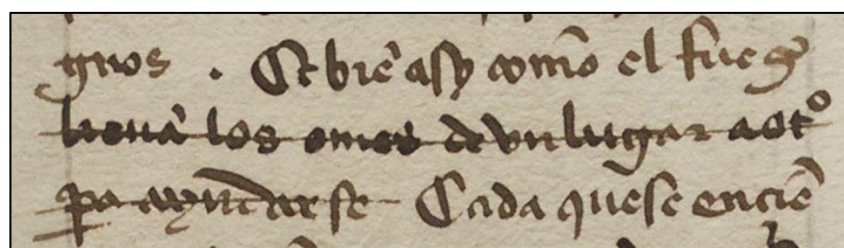 gnos . Et biē asy com̄o el fueg̃
lieuā los omes de vn lugar a otº
ꝑa ayudarse Cada quese enciē